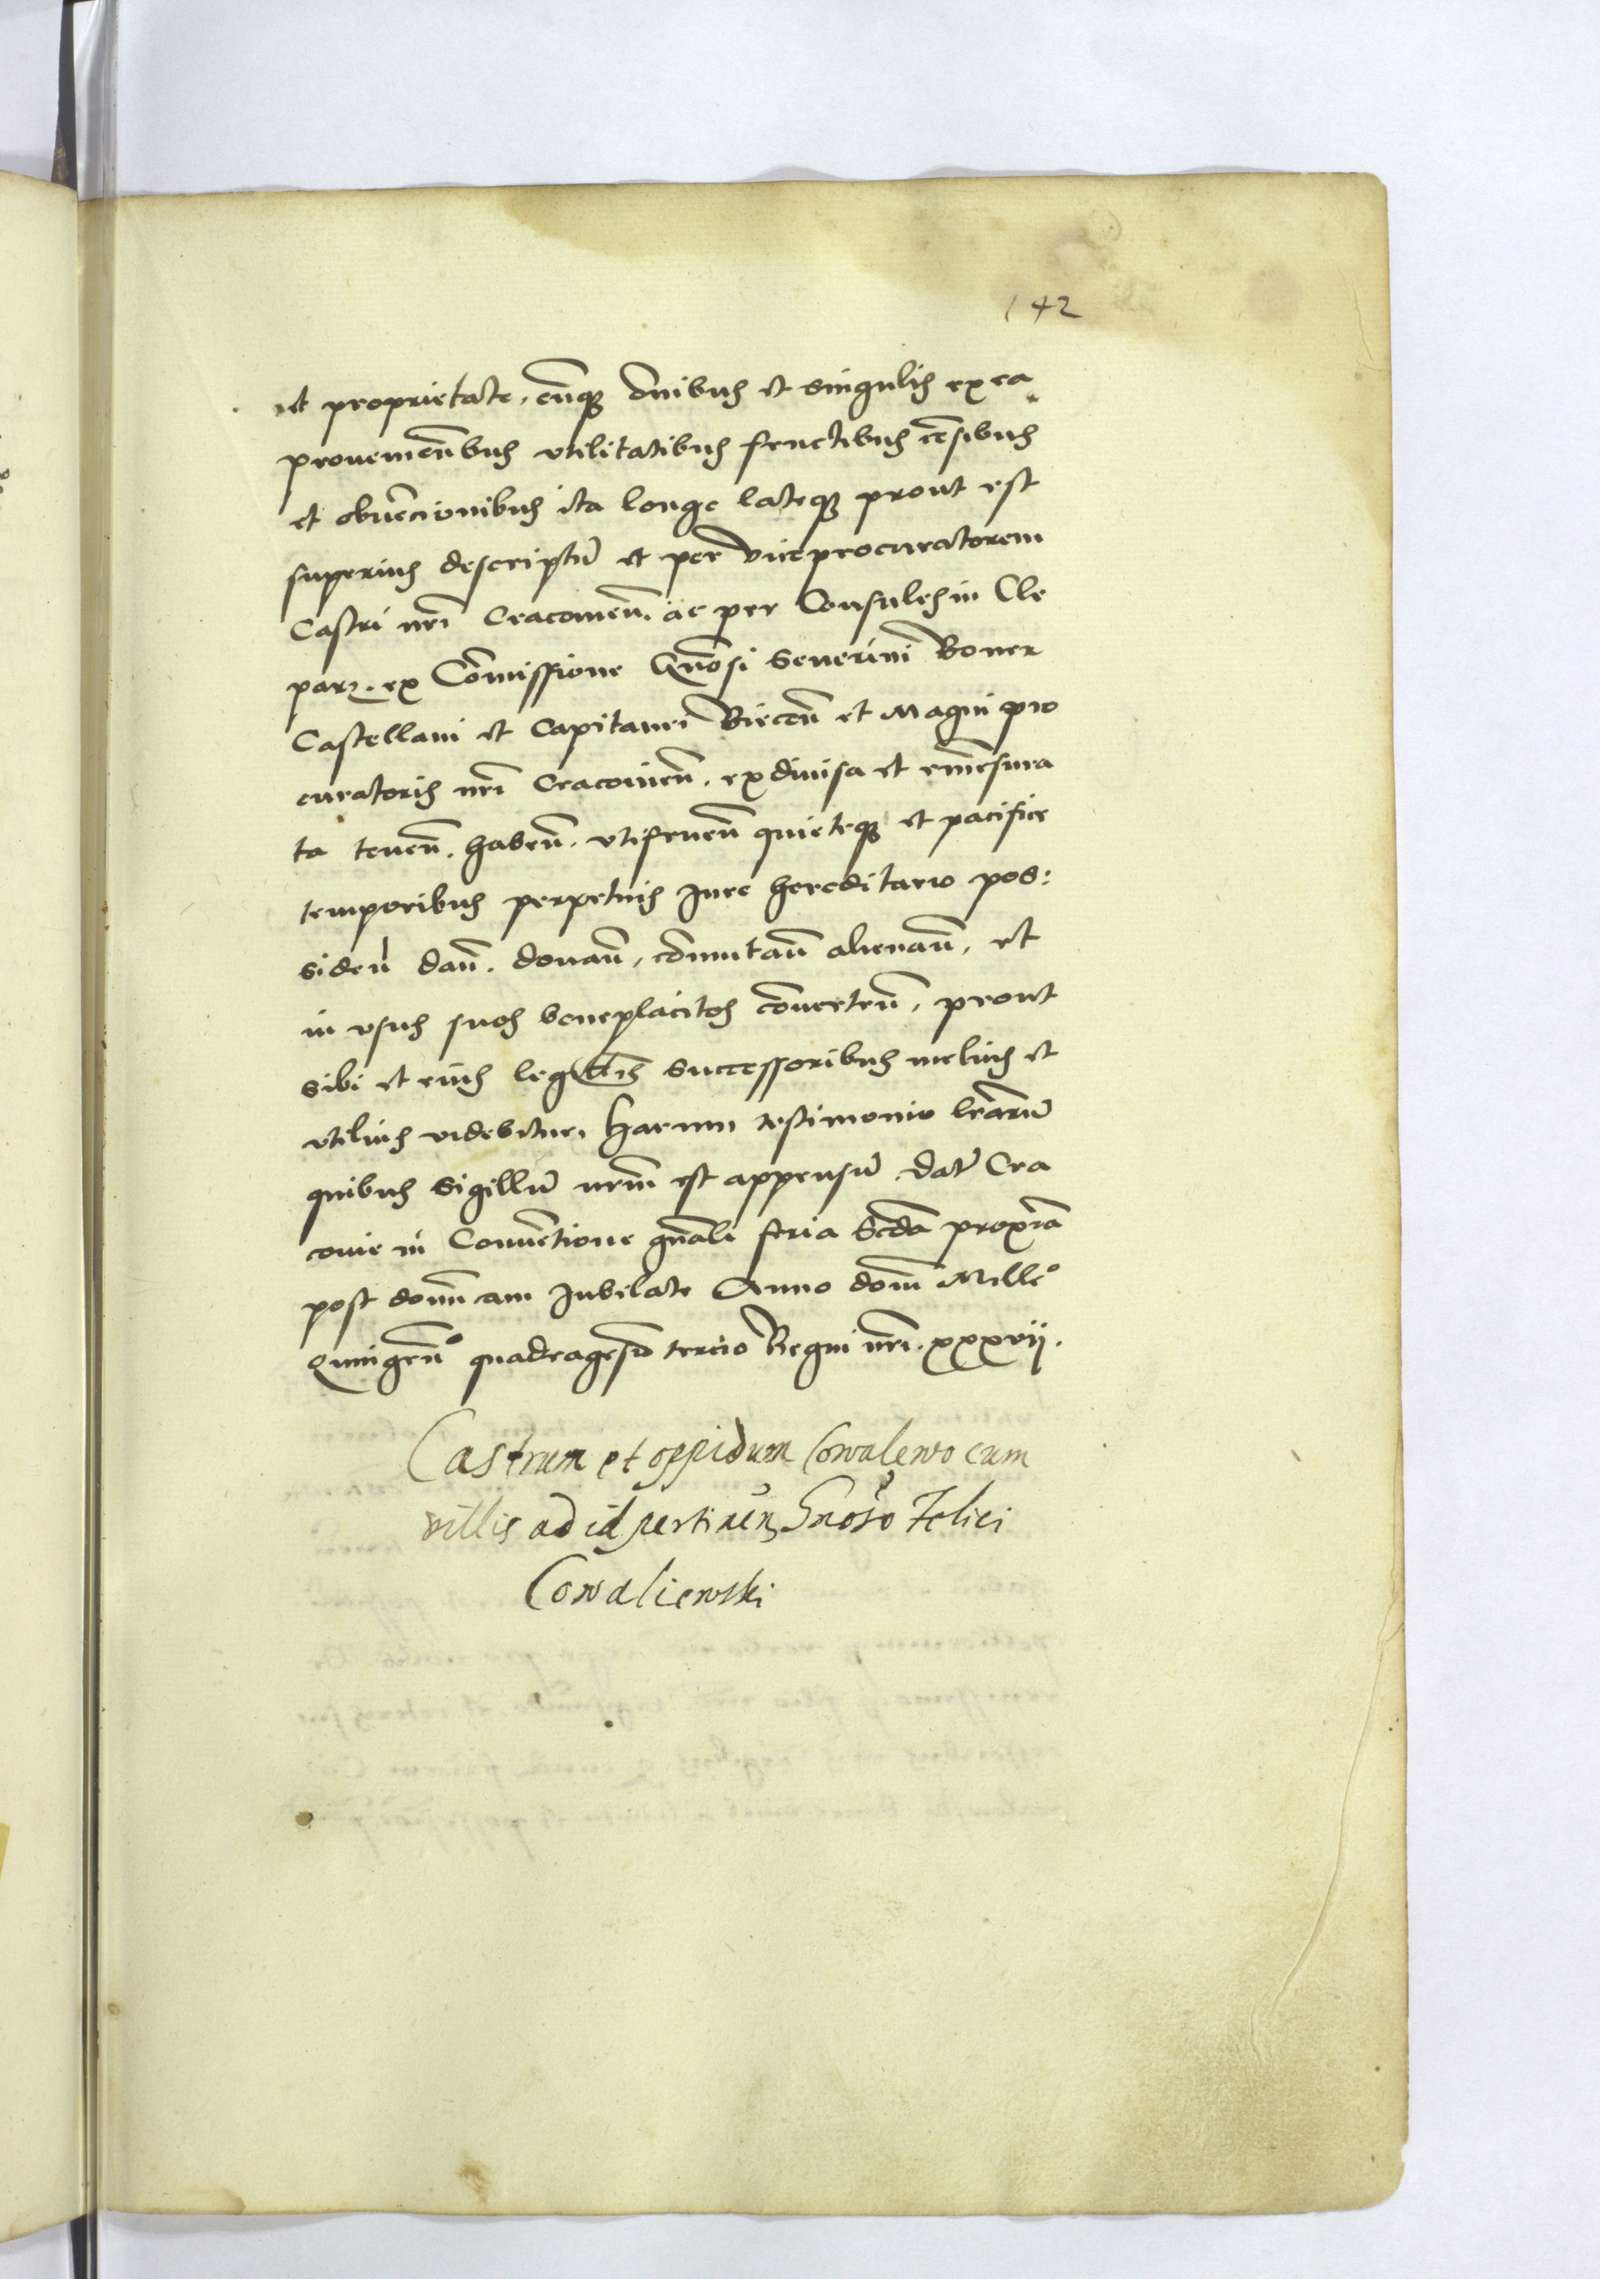 142
et proprietate, cumq̃ omnibus et singulis ex ea
prouenieñbus vtilitatibus fructibus cẽsibus
et obuẽcionibus ita longe lateq̃ prout est
superius descriptũ et per viceprocuratorem
Castri nr̃i Cracouieñ. ac per Consules in Cle
parz. ex Cõmissione Gñosi Seuerini Boner
Castellani et Capitanei Bieceñ et Magni pro
curatoris nr̃i Cracouieñ. ex diuisa et emẽsura
ta teneñ. habeñ. vtifrueñ quieteq̃ et pacifice
temporibus perpetuis Jure hereditario pos:
sideñ dañ. donañ, cõmutañ alienañ, et
in vsus suos beneplacitos cõuerteñ, prout
sibi et eius legittis successoribus melius et
vtilius videbitur, Harum testimonio lr̃arũ
quibus Sigillũ nrm̃ est appensũ Datũ Cra
couie in Conuẽtione gñali feria Scd̃a proxĩa
post domĩcam Jubilate Anno dom̃ Mille°
Quingeñ° quadragesĩo tercio Regni nr̃i. xxxvij.
Castrum et oppidum Cowalewo cum
villis ad id pertineñ Gnõso Felici
Cowaliewski